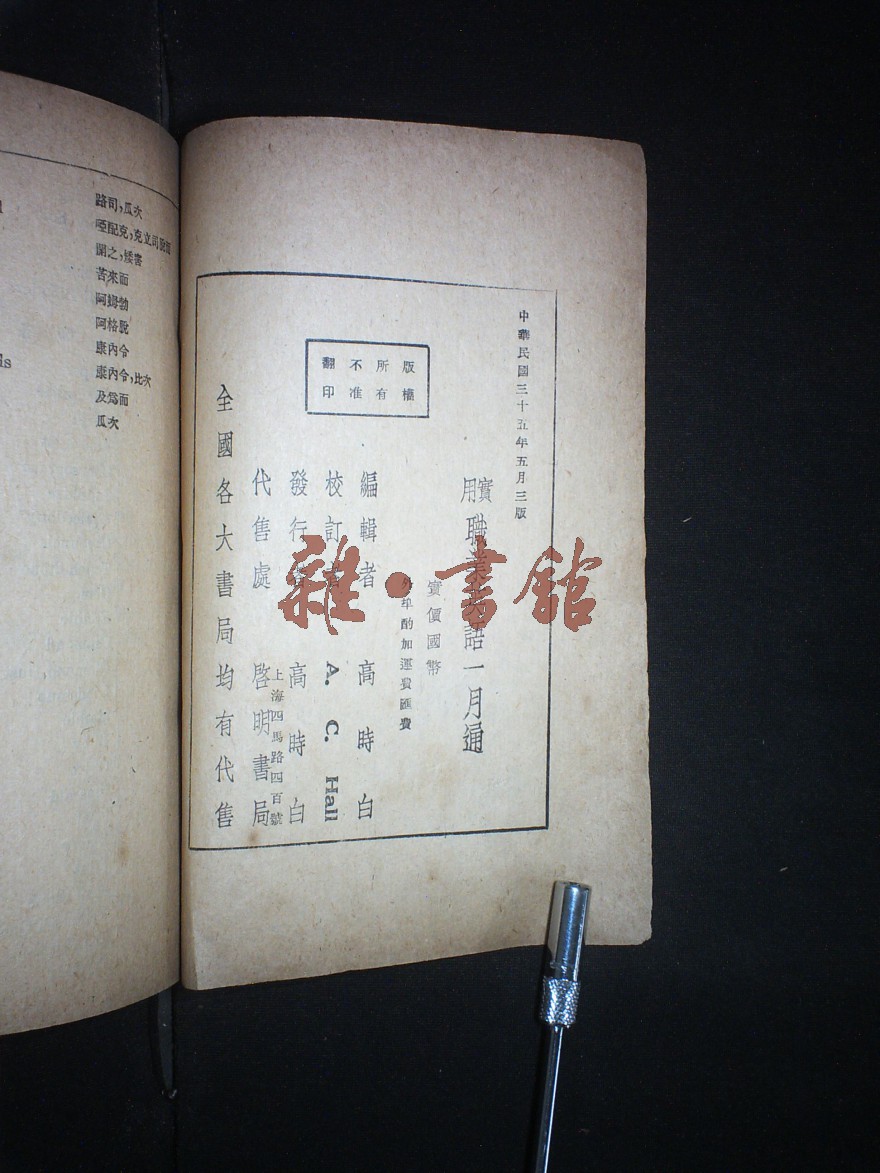 中華民國三十五年五月三版
實用職業英語一月通
實價國幣
外埠酌加運費匯費
版權所有
不准翻印
編輯者 高時白
校訂者 A. C. Hall
發行者 高時白
代售處 啓明書局
上海四馬路四百號
全國各大書局均有代售
雜·書館
路司,瓜次
啞配克,克立司
開之,矮書
苦來而
阿姆勃
阿格脫
康內令
康內令,比次
及爲而
瓜次